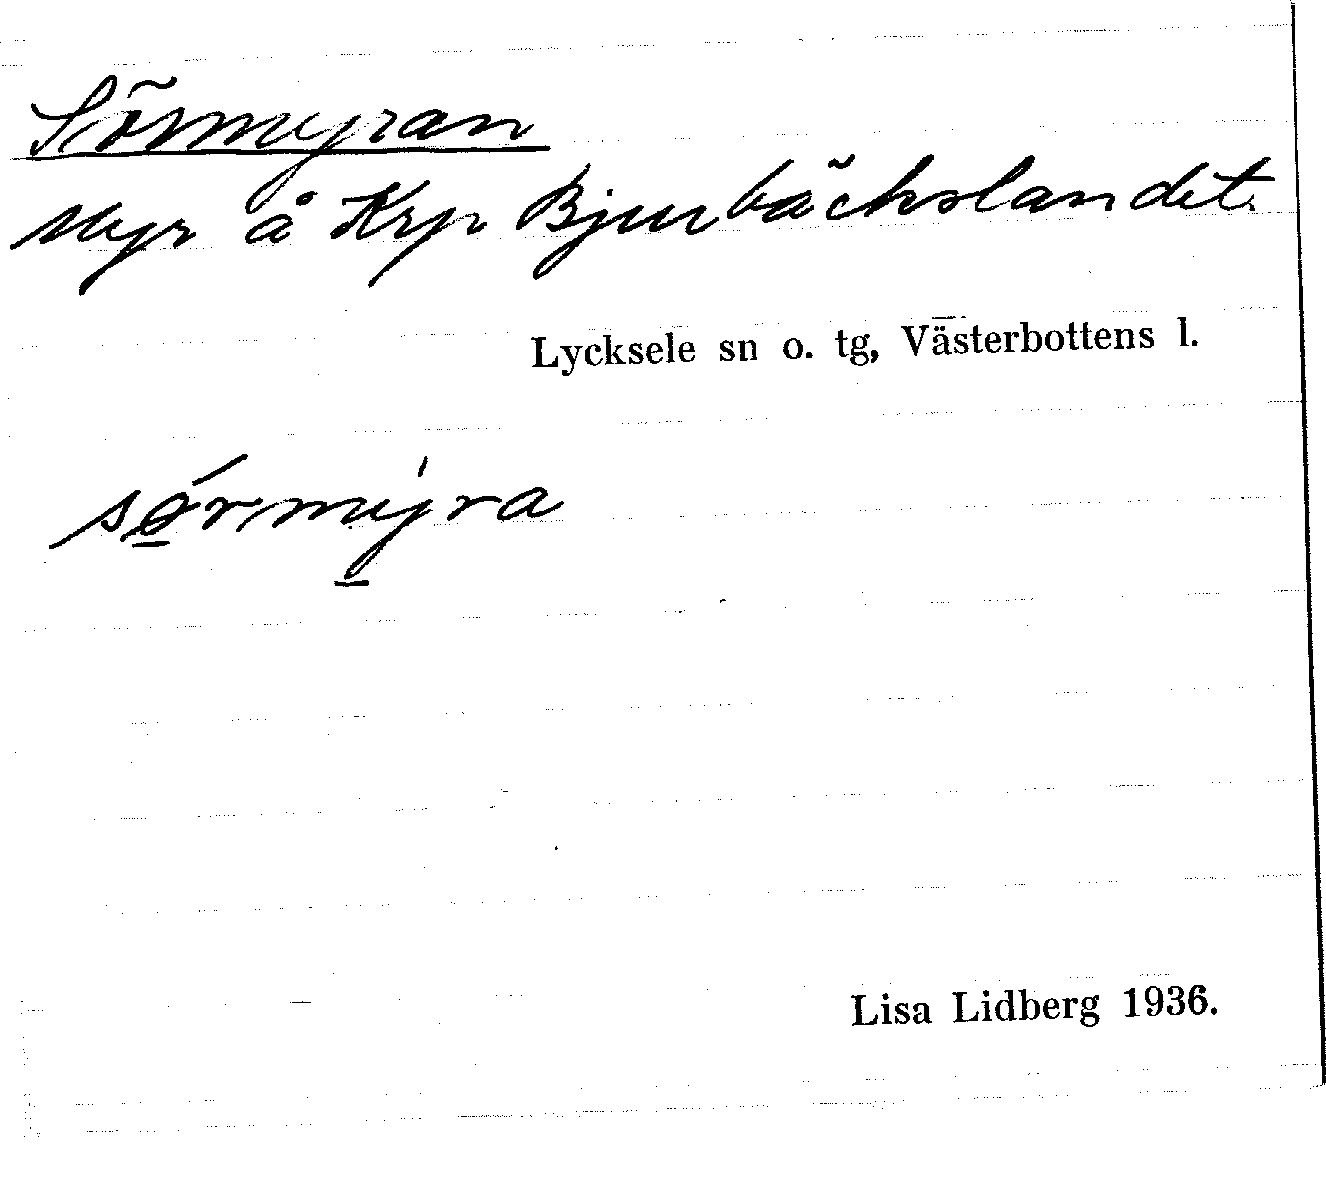 Sörmyran
Myr å Krp Bjurbäckslandet.
Lycksele sn o. tg, Västerbottens l.
sǿ̱rmy̱̍ra
Lisa Lidberg 1936.